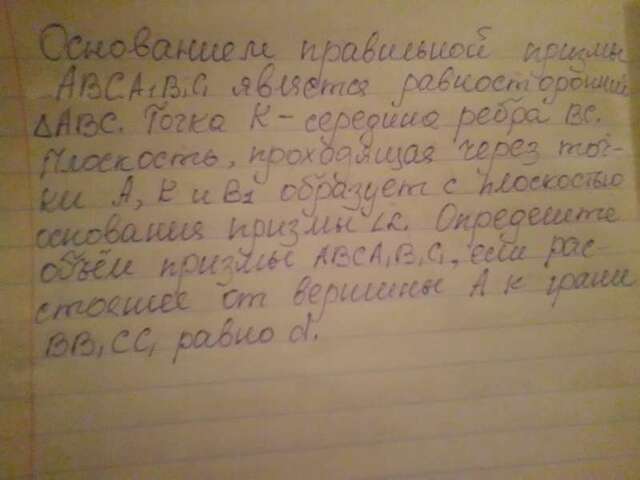 Основанием правильной призмы
ABCA₁B₁C₁ является равносторонний
△ABC. Точка K - середина ребра BC.
Плоскость, проходящая через точ-
ки A, K и B₁ образует с плоскостью
основания призмы ∠α. Определите
объём призмы ABCA₁B₁C₁, если рас-
стояние от вершины A к грани
BB₁CC₁ равно d.